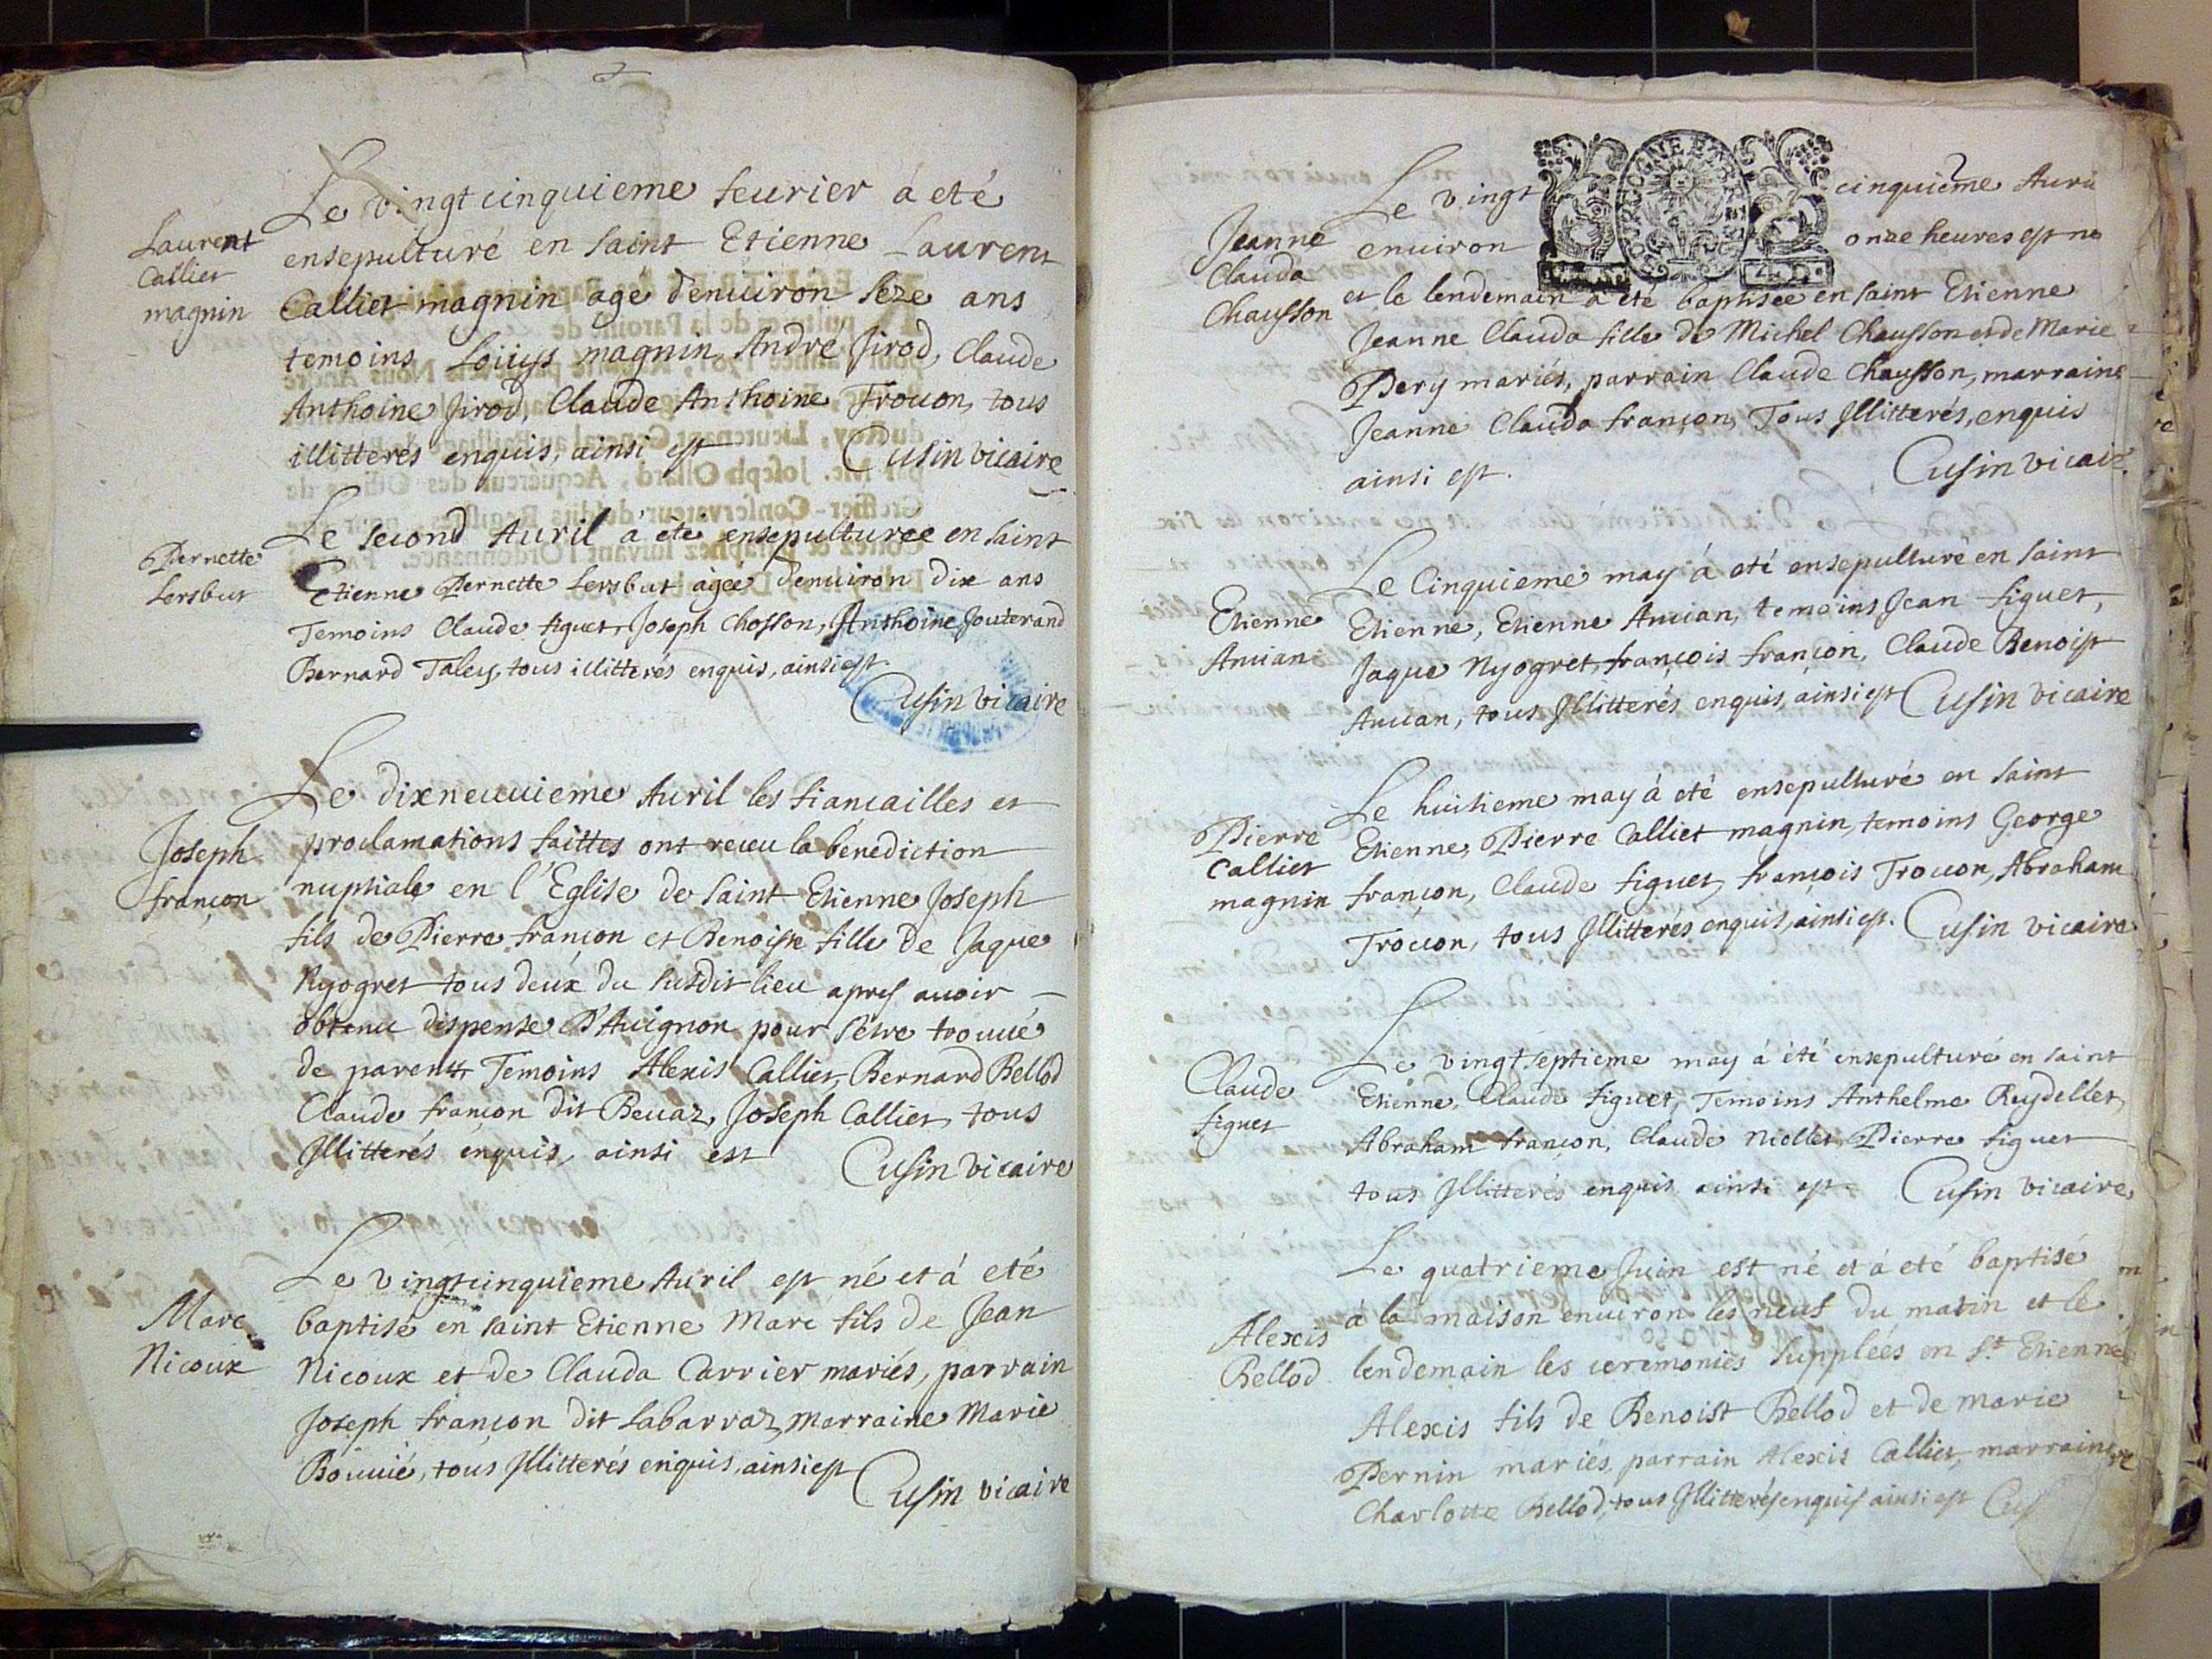 Laurent
Calliet
magnin
Le vingt cinquieme feurier á eté
ensepulturé en saint Etienne Laurent
Calliet magnin agé denuiron seze ans
temoins Loüys magnin, André Jirod, Claude
Anthoine Jirod, Claude Anthoine Trouon, tous
illitterés enquis, ainsi est Cusin vicaire
Pernette
Lersbut
Le second Auril á été ensepulturee en saint
Etienne Pernette Lersbut agée denuiron dix ans
Temoins Claude figuet, Joseph Chosson, Anthoine Jouterand
Bernard Taley, tous illitterés enquis, ainsi est.
Cusin vicaire
Joseph
françon
Le dixneuuiéme Auril les fiancailles et
proclamations faittes ont receu la bénediction
nuptiale en l'Eglise de saint Etienne Joseph
fils de Pierre françon et Benoiste fille de Jaque
Nyogret tous deux du susdit lieu apres auoir
obtenu dispense D'Auignon pour sétre trouué
de parenté Temoins Alexis Calliet, Bernard Bellod
Claude françon dit Beuaz, Joseph Calliet, tous
Illitterés enquis, ainsi est Cusin vicaire
Marc
Nicoux
Le vingtcinquieme Auril est né et á eté
baptisé en saint Etienne Marc fils de Jean
Nicoux et de Clauda Carrier mariés, parrain
Joseph françon dit Labarraz, marraine Marie
Bouuié, tous Illitterés enquis, ainsi est
Cusin vicaire
Jeanne
Clauda
Chausson
Le vingt cinquiême Auri
enuiron onze heures est né
et le lendemain a été baptisée en saint Etienne
Jeanne Clauda fille de Michel Chausson et de Marie
Pery mariés, parrain Claude Chausson, marraine
Jeanne Clauda françon, Tous Illitterés, enquis
ainsi est. Cusin vicair
Etienne
Amian
Le Cinquieme may á eté ensepulturé en saint
Etienne, Etienne Amian, temoins Jean figuet,
Jaque Nyogret, françois françon, Claude Benoist
Amian, tous Illitterés enquis, ainsi est Cusin vicaire
Pierre
Calliet
magnin
Le huitieme may á eté ensepulturé en saint
Etienne, Pierre Calliet magnin, temoins George
françon, Claude figuet, françois Trouon, Abraham
Trouon, tous Illitterés enquis, ainsi est. Cusin vicaire
Claude
figuet
Le vingtseptieme may á été ensepulturé en saint
Etienne, Claude figuet, Temoins Anthelme Reydellet,
Abraham françon, Claude Niollet, Pierre figuet
tous Illitterés enquis ainsi est Cusin vicaire
Alexis
Bellod
Le quatrieme Juin est né et á eté baptisé
á la maison enuiron les neuf du matin et le
lendemain les ceremonies supplées en St Etienne
Alexis fils de Benoist Bellod et de marie
Pernin mariés, parrain Alexis Calliet, marraine
Charlotte Bellod, tous Illitterés enquis ainsi est Cus